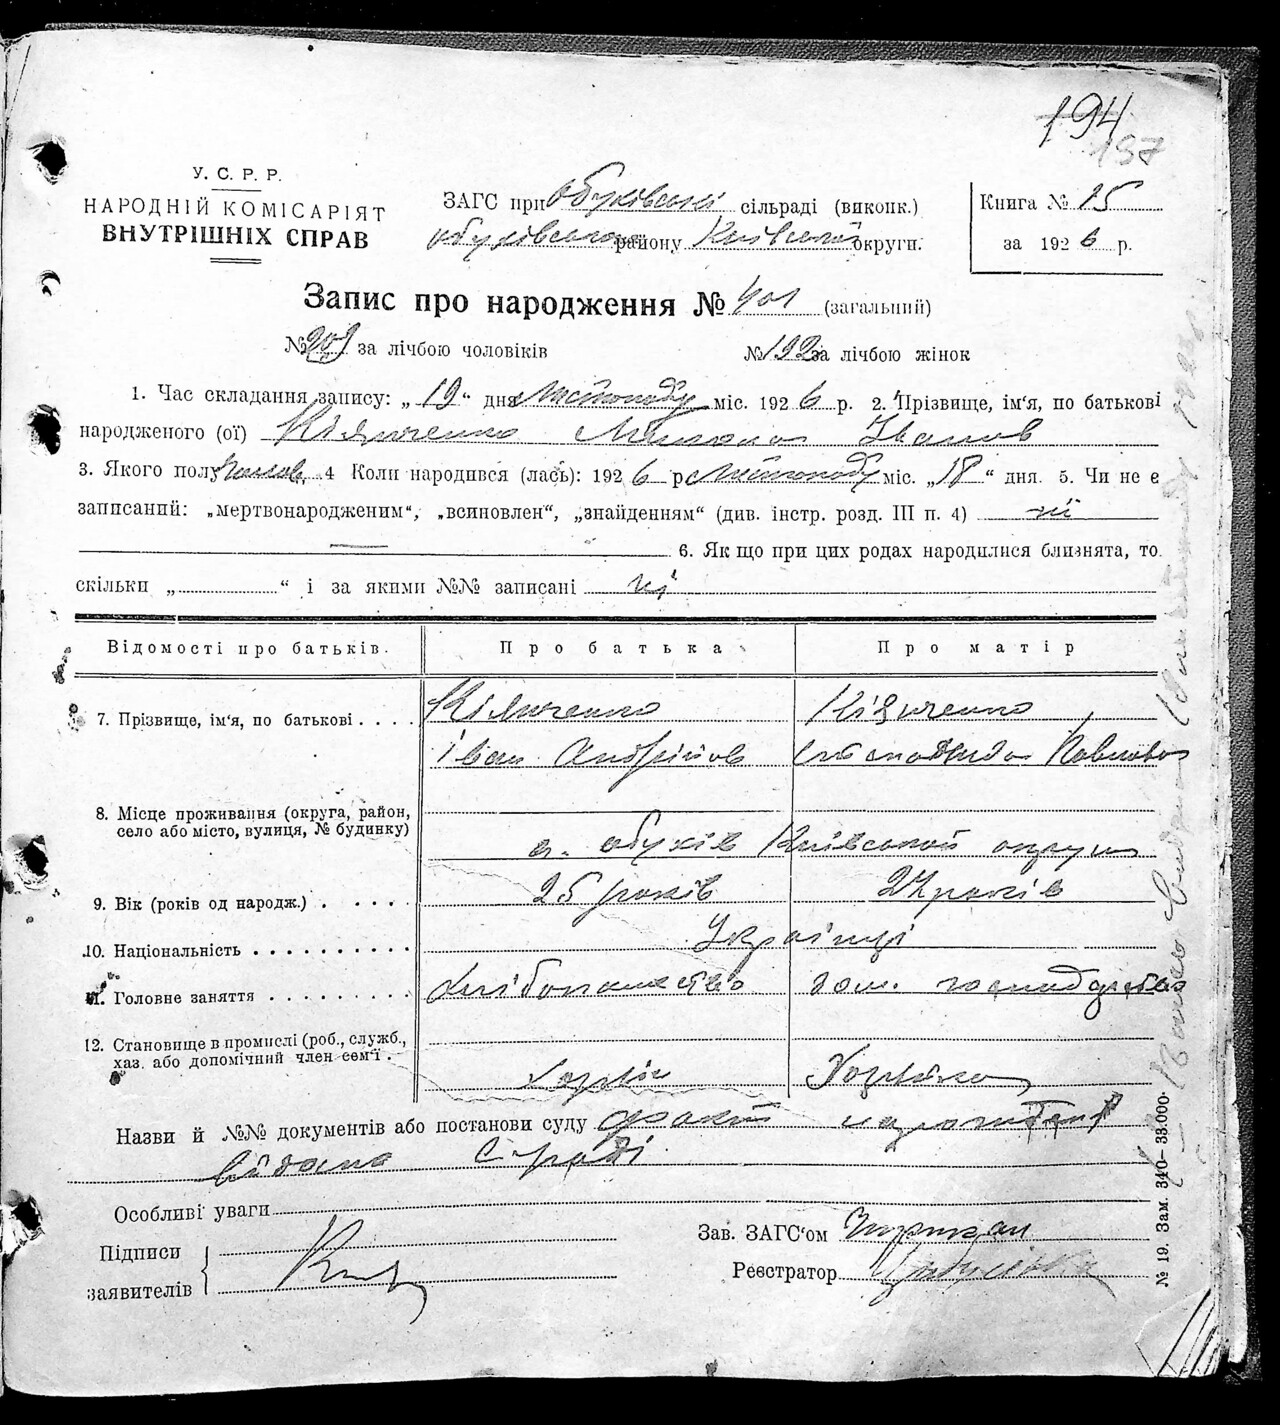 194
197
У. С. Р. Р.
НАРОДНІЙ КОМІСАРІЯТ
ВНУТРІШНІХ СПРАВ
ЗАГС при Обухівські сільраді (виконк.)
Обухівського району Київської округи.
Книга № 15
за 1926 р.
Запис про народження № 401 (загальний)
№ 209 за лічбою чоловіків № 192 за лічбою жінок
1. Час складання запису: „ 19 “ дня листопаду міс. 1926 р. 2. Прізвище, ім‘я, по батькові
народженого (ої) Кіяниченко Иванов
3. Якого полу чолов. 4 Коли народився (лась): 1926 р листопаду міс. „ 18 “ дня. 5. Чи не є
записаний: „мертвонародженим“, „всиновлен“, „знайденням“ (див. інстр. розд. III п. 4) ні
6. Як що при цих родах народилися близнята, то
скільки „ “ і за якими №№ записані ні
Відомості про батьків. Про батька Про матір
7. Прізвище, ім‘я, по батькові . . . . Кіяниченко Кіяниченко
Іван Андрійов Павлова
8. Місце проживання (округа, район,
село або місто, вулиця, № будинку)
с. Обухів Київської округи
9. Вік (років од народж.) . . . . . 25 років 24 років
10. Національність . . . . . . . . . . Українці
11. Головне заняття . . . . . . . . . Хлібопашество дом. господарство
12. Становище в промислі (роб., служб.,
хаз. або допомічний член сем‘ї .
Хазяїн Хазяйка
Назви й №№ документів або постанови суду факт
видана С/раді
Особливі уваги
Підписи
заявителів
Зав. ЗАГС‘ом
Реєстратор
№ 19. Зам. 340—33.000.